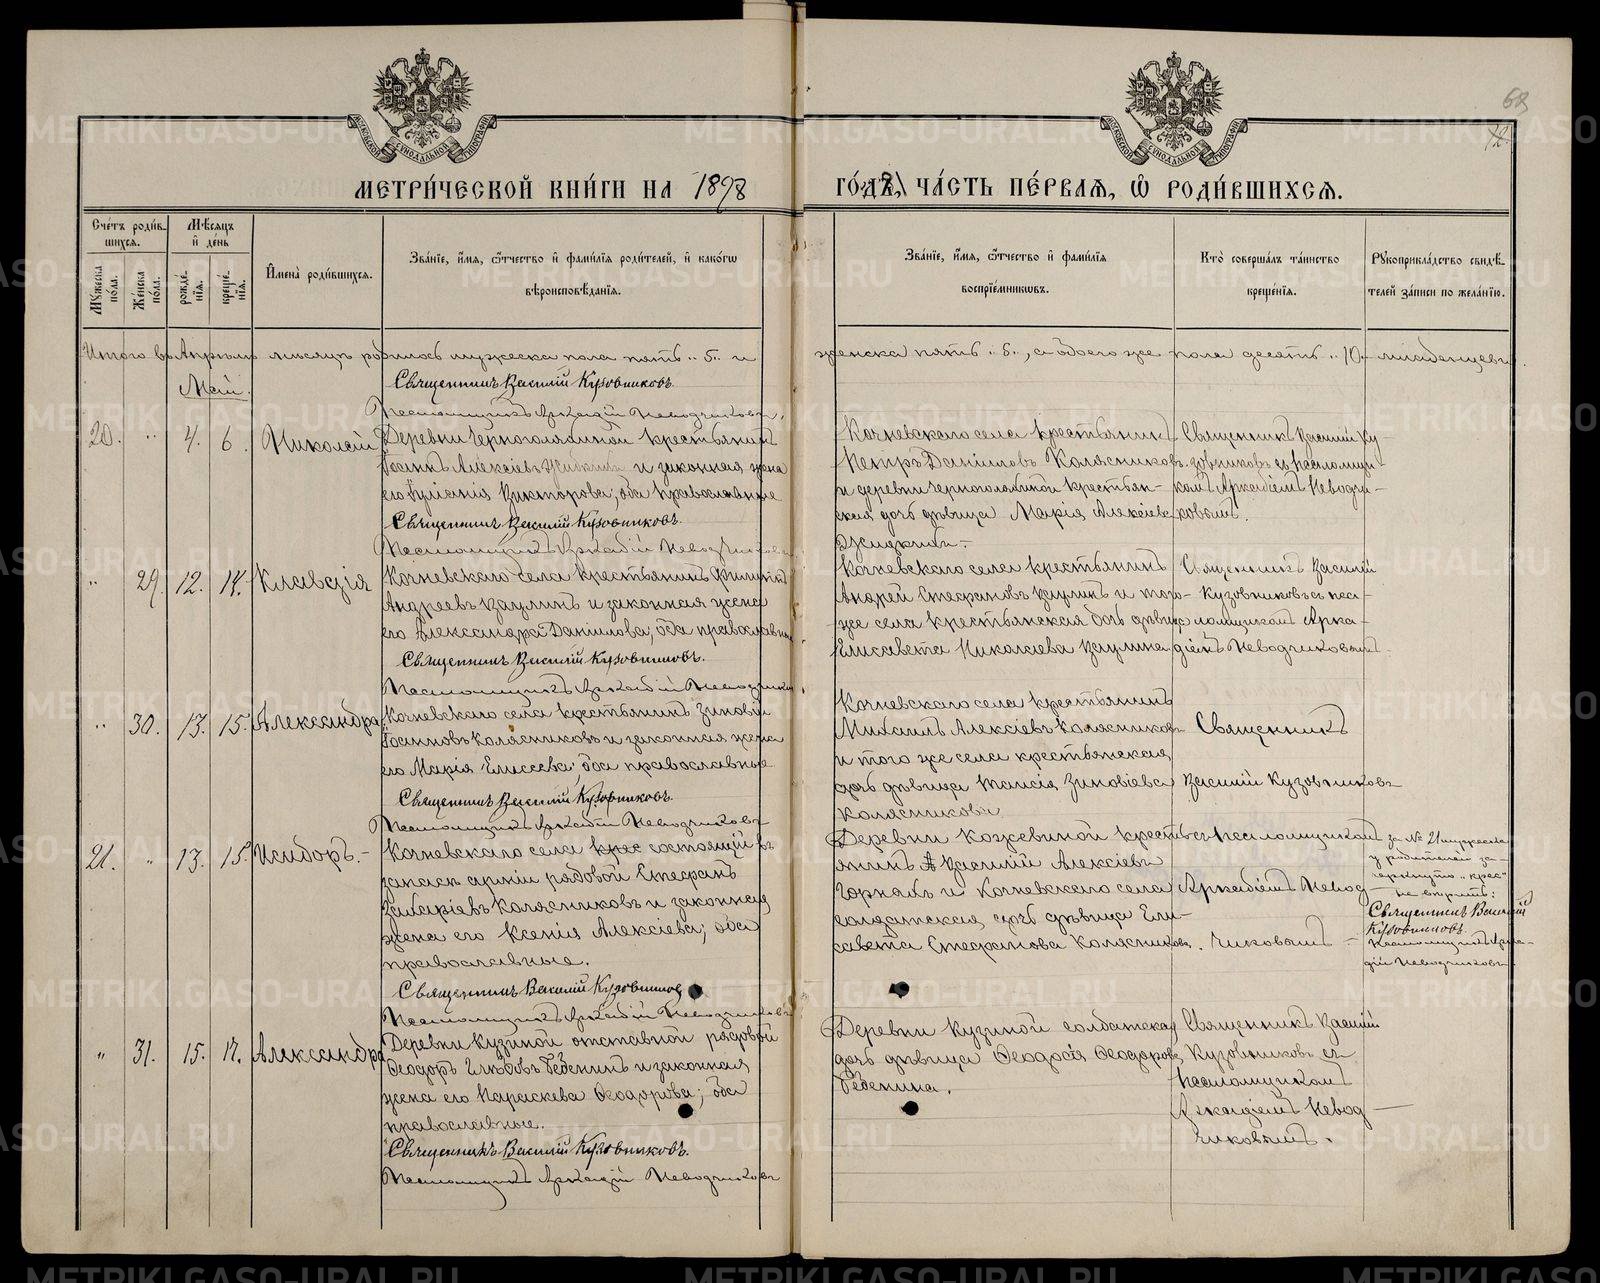 68
72
МЕТРИ́ЧЕСКОЙ КНИ́ГИ НА 1898 ГО́ДЪ, ЧА́СТЬ ПЕ́РВАЯ, Ѡ҆ РОДИ́ВШИХСЯ.
Сче́тъ роди́в-
шихся.
Мѣ́сяцъ
и҆ де́нь
Мꙋ́жеска по́ла.
Же́нска по́ла.
рожде́-
нїя.
креще́-
нїя.
И҆мена̀ роди́вшихся.
Зва́нїе, и҆́мя, ѻ҆́тчество и҆ фами́лїя роди́телей, и҆ како́гѡ
вѣроисповѣ́данїя.
Зва́нїе, и҆́мя, ѻ҆́тчество и҆ фами́лїя
воспрїе́мникѡвъ.
Кто̀ соверша́лъ та́инство
креще́нїя.
Рꙋкоприкла́дство свидѣ́-
телей за́писи по жела́нїю.
Итого въ Апрѣлѣ мѣсяцѣ родилось мужеска пола пять „5„ и женска пять „5„, а обоего же пола десять „10„ младенцевъ.
Священникъ Василій Кузовниковъ
Май.
Псаломщикъ Аркадій Неводчиковъ.
20. „ 4. 6. Николай
Деревни Черноголовиной крестьянинъ
Алексіевъ и законная жена
его Викторова, оба православные
Священникъ Василій Кузовниковъ.
Псаломщикъ Аркадій Неводчиковъ
Кочневскаго села крестьянинъ
Петръ Даніиловъ Колясниковъ
и деревни Черноголовиной крестьян-
ская дочь дѣвица Марія Алексіева
Священникъ Василій Ку-
зовниковъ съ псаломщи-
комъ Аркадіемъ Неводчи-
ковымъ.
„ 29. 12. 14. Клавдія
Кочневскаго села крестьянинъ Филиппъ
Андреевъ Ваулинъ и законная жена
его Александра Даніилова, оба православные
Священникъ Василій Кузовниковъ.
Псаломщикъ Аркадій Неводчиковъ
Кочневскаго села крестьянинъ
Андрей Стефановъ Ваулинъ и того-
же села крестьянская дочь дѣвица
Елисавета Николаева Ваулина
Священникъ Василій
Кузовниковъ съ пса-
ломщикомъ Арка-
діемъ Неводчиковымъ.
„ 30. 13. 15. Александра
Кочневскаго села крестьянинъ Зиновій
Іоанновъ Колясниковъ и законная жена
его Марія Елисеева, оба православные
Священникъ Василій Кузовниковъ.
Псаломщикъ Аркадій Неводчиковъ
Кочневскаго села крестьянинъ
Михаилъ Алексіевъ Колясниковъ
и того же села крестьянская
дочь дѣвица Таисія Зиновіева
Колясникова
Священникъ
Василій Кузовниковъ
21. „ 13. 15. Исидоръ. –
Кочневскаго села крес состоящій въ
запасѣ арміи рядовой Стефанъ
Захаріевъ Колясниковъ и законная
жена его Ксенія Алексіева; оба
православные.
Священникъ Василій Кузовниковъ
Псаломщикъ Аркадій Неводчиковъ
Деревни Кожевиной кресть-
янинъ Василій Алексіевъ
и Кочневскаго села
солдатская дочь дѣвица Ели-
савета Стефанова Колясникова.
съ псаломщикомъ
Аркадіемъ Невод-
чиковымъ –
за № 21 мужеска
у родителей за-
черкнуто „крес"
не вѣрить:
Священникъ Василій
Кузовниковъ.
Псаломщикъ Арка-
дій Неводчиковъ.
„ 31. 15. 17. Александра
Деревни Кузиной отставной рядовой
Ѳеодоръ Глѣбовъ Бебенинъ и законная
жена его Параскева Ѳеодорова; оба
православные.
Священникъ Василій Кузовниковъ.
Псаломщикъ Аркадій Неводчиковъ
Деревни Кузиной солдатская
дочь дѣвица Ѳеодосія Ѳеодорова
Бебенина.
Священникъ Василій
Кузовниковъ съ
псаломщикомъ
Аркадіемъ Невод-
чиковымъ.
METRIKI.GASO-URAL.RU